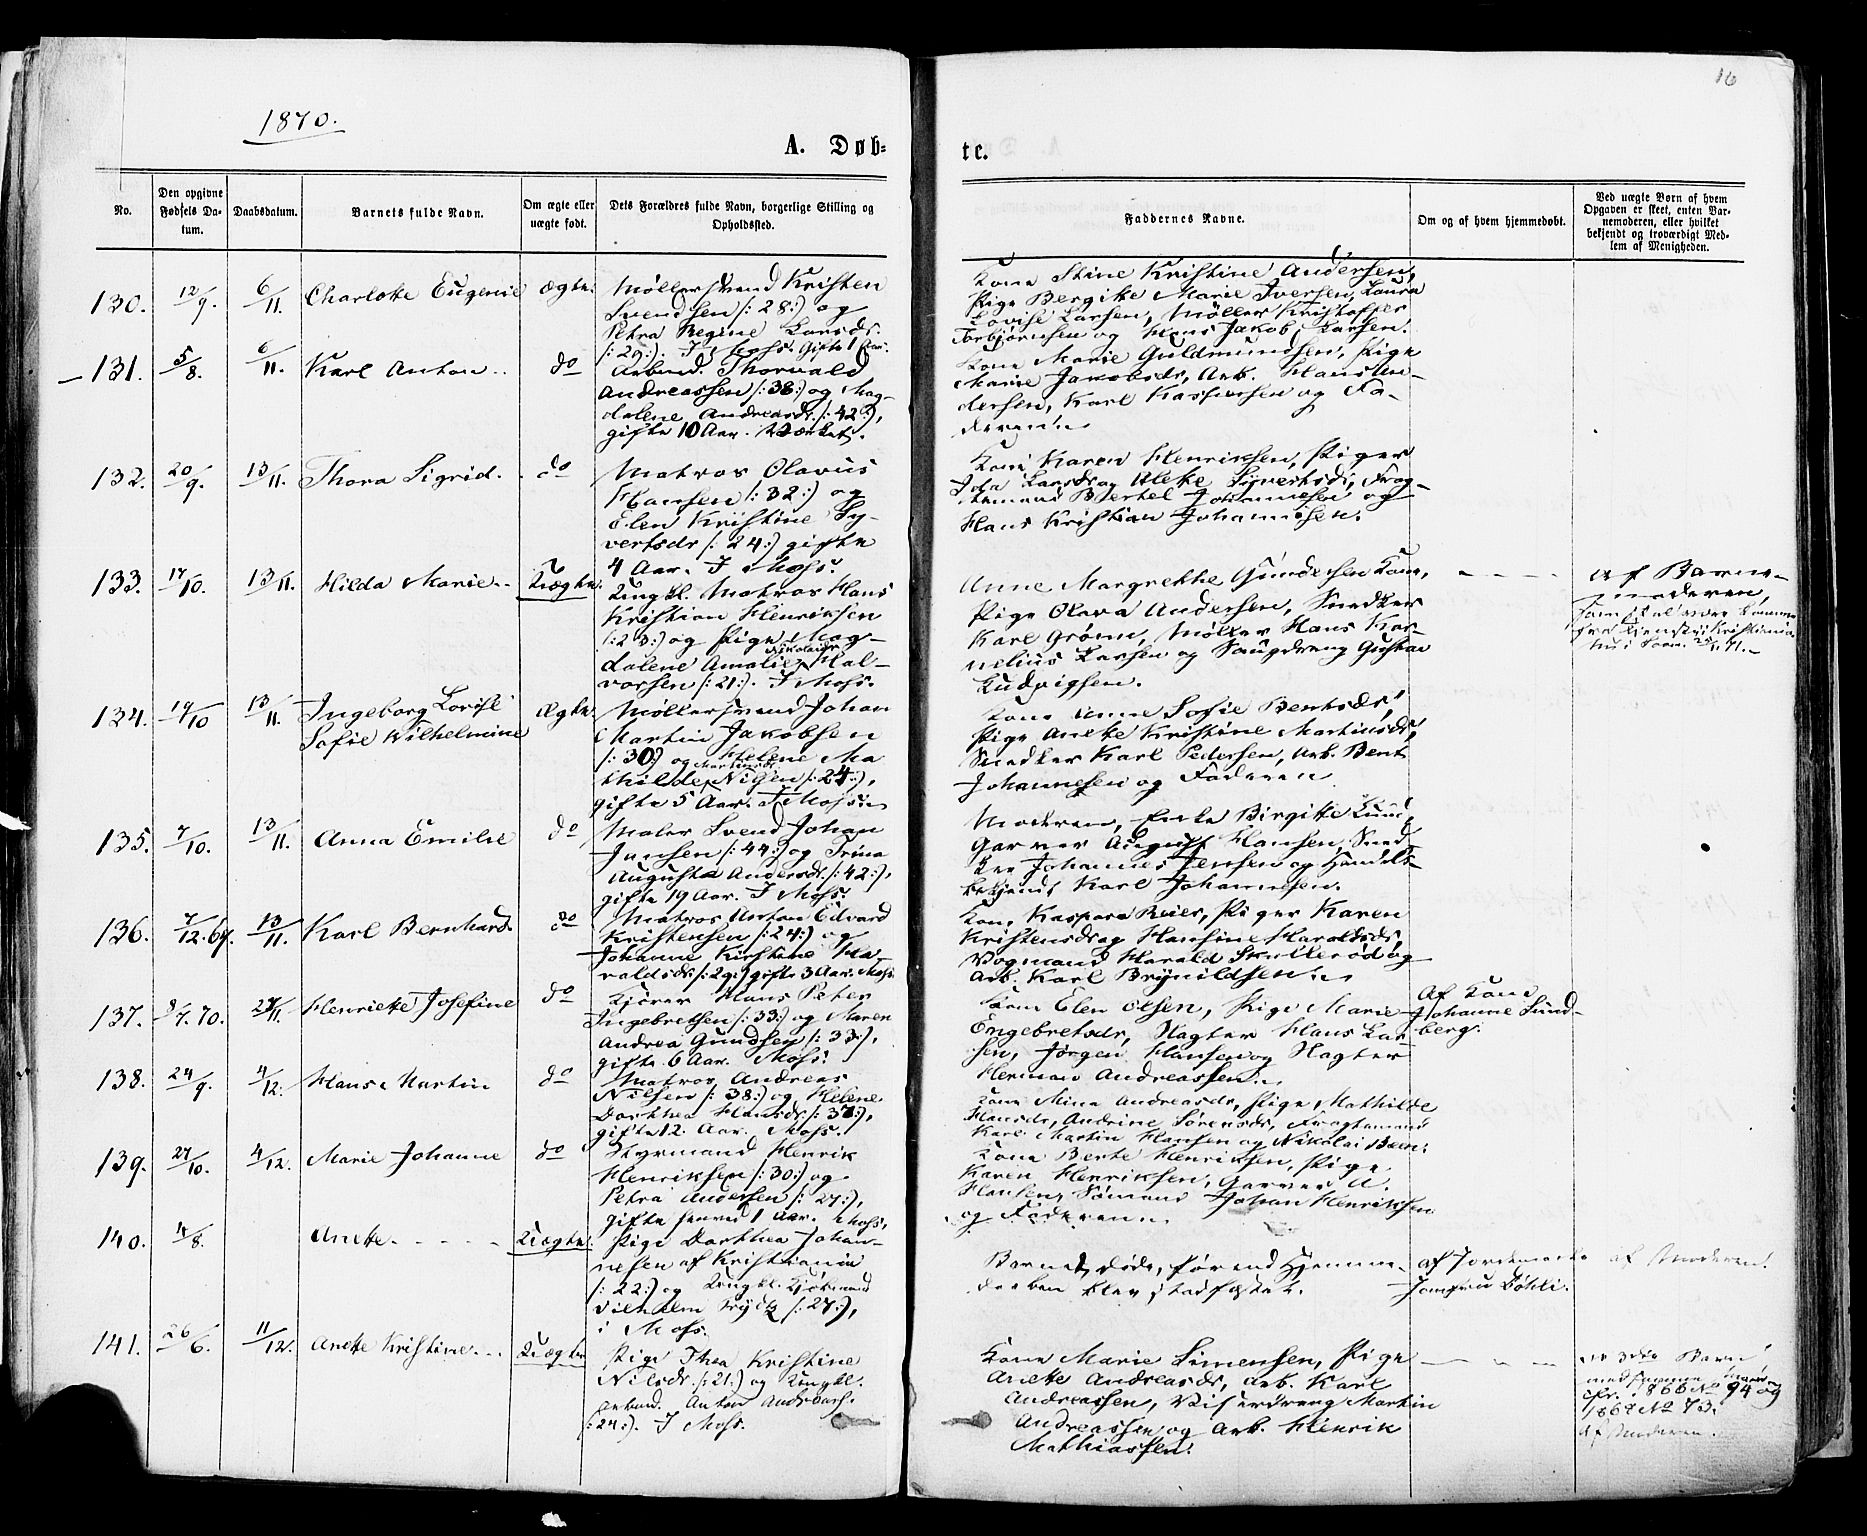 16
1870.
A. Døb-
te.
No.
Den opgivne Fødsels Da-
tum.
Daabsdatum.
Barnets fulde Navn.
Om ægte eller
uægte født.
Dets Forældres fulde Navn, borgerlige Stilling og
Opholdssted.
Faddernes Navne.
Om og af hvem hjemmedøbt.
Ved uægte Børn af hvem
Opgaven er skeet, enten Bar-
nemoderen, eller hvilket
bekjendt og troværdigt Med-
lem af Menigheden.
130. 12/9. 6/11. Charlotte Eugenie ægte.
Møllersvend Kristen
Svendsen /: 28 :/ og
Petra Regine Larsdr.
/: 29 :/. I Moss. Gifte 1 Aar.
Kone Stine Kristine Andersen,
Pige Bergitte Marie Iversen, Laura
Lovise Larsen, Møller Kristoffer
Torbjørnsen og Hans Jakob Larsen.
131. 5/8. 6/11. Karl Anton.. do
Arbmd. Thorvald
Andreassen /: 38 :/ og Mag-
dalene Andreasdr. /: 42 :/,
gifte 10 Aar. Værket.
Kone Marie Guldmundsen, Pige
Marie Jakobsdr, Arb. Hans An-
dersen, Karl Kaspersen og Fa-
deren.
132. 20/9. 13/11. Thora Sigrid. do
Matros Olavus
Hansen /: 32 :/ og
Elen Kristine Sy-
vertsdr /: 24 :/ gifte
4 Aar. I Moss.
Kone Karen Henriksen, Piger
Ida Larsdr og Aleke Sivertsdr, Frag-
temand Bertel Johannesen og
Hans Kristian Johannesen.
133. 17/10. 13/11. Hilda Marie.. Uægte.
Ungkl. Matros Hans
Kristian Henriksen
/: 23 :/ og Pige Mag-
dalene Amalie Nikolaidr. Hal-
vorsen /: 21 :/. I Moss.
Anne Margrethe Gundersen Kone,
Pige Olava Andersen, Snedker
Karl Grønn, Møller Hans Kor-
nelius Larsen og Saugdreng Gustav
Ludvigsen.
Af Barne-
moderen,
134. 19/10 13/11. Ingeborg Lovise
Sofie Wilhelmine
ægte.
Møllersvend Johan
Martin Jakobsen
/: 30 :/ og Helene Ma
thilde Martinsdr. Nigen /: 24 :/,
gifte 5 Aar. I Moss.
Kone Anne Sofie Bentsdr,
Pige Anette Kristine Martinsdr,
Snedker Karl Pedersen, Arb. Bent
Johannesen og Faderen
135. 7/10. 13/11. Anna Emilie do
Maler Svend Johan
Jansen /: 44 :/ og Trina
Augusta Andersdr. /: 42 :/,
gifte 19 Aar. I Moss.
Moderen, Enke Birgitte Lund,
Garver August Hansen, Sned-
ker Johannes Jensen og Handels-
betjent Karl Johannesen.
136. 7/12. 69. 13/11. Karl Bernhard. do
Matros Anton Edvard
Kristensen /: 24 :/ og
Johanne Kirstine Ha-
raldsdr /: 29 :/ gifte 3 Aar. Moss.
Kone Kaspara Reier, Piger Karen
Kristensdr og Hansine Haraldsdr,
Vognmand Harald Skullerød og
Arb. Karl Brynildsen.
137. 8/7. 70. 27/11. Henriette Josefine do
Kjører Hans Peter
Ingebretsen /: 33 :/ og Maren
Andrea Gundsen /: 33 :/,
gifte 6 Aar. Moss.
Kone Elen Olsen, Pige Marie
Engebretsdr, Vagter Hans Lar-
sen, Jørgen Hansen og Vagter
Herman Andreassen.
Af Kone
Johanne Sund-
berg.
138. 24/9. 4/12. Hans Martin do
Matros Andreas
Nilsen /: 38 :/ og Helene
Dorthea Hansdr. /: 37 :/,
gifte 12. Aar. Moss.
Kone Mina Andreasdr, Pige Mathilde
Hansdr, Andrine Sørensdr, Fragtemand
Karl Martin Hansen og Nikolai Bern.
139. 27/10. 4/12. Marie Johanne do
Styrmand Henrik
Henriksen /: 30 :/ og
Petra Andersen /: 27 :/,
gifte henved 1 Aar. Moss.
Kone Berte Henriksen, Pige
Karen Henriksen, Garver A.
Hansen, Sømand Johan Henriksen
og Faderen.
140. 4/8. Anette. Uægte.
Pige Dorthea Johan-
nesen af Kristiania
/: 22 :/ og Ungkl.
Vilhelm /: 27 :/,
i Moss.
Barnet døde, førend Hjemme-
daaben blev stadfæstet.
af Jordemoder
Jomfru Bøhli.
af Moderen.
141. 26/6. 11/12. Anette Kristine... Uægte
Pige Thea Kristine
Nilsdr. /: 21 :/ og Ungkl.
Arbmd. Anton Andreass.
/: 24 :/. I Moss.
Kone Marie Simensen, Pige
Anette Andreasdr, Arb. Karl
Andreassen, Viserdreng Martin
Andreassen og Arb. Henrik
Mathiassen.
3die Barn
med samme Mand
cfr. 1866 No 94 og
1868 No 73.
Af Moderen.